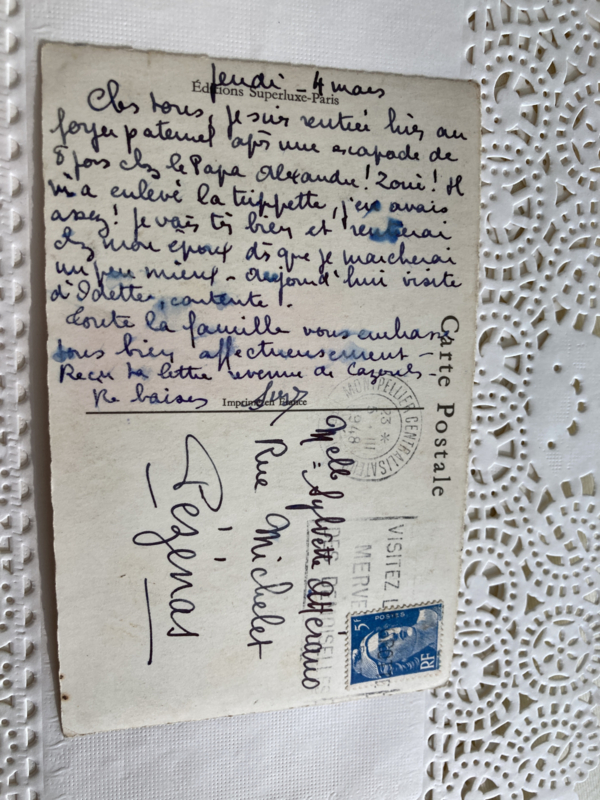 Jeudi - 4 mars
Éditions Superluxe-Paris
Chers tous, je suis rentrée hier au
foyer paternel après une escapade de
8 jours chez le Papa Alexandre! Zoui! Il
m'a enlevé la trippette, j'en avais
assez! Je vais très bien et rentrerai
chez mon époux dès que je marcherai
un peu mieux - Aujourd'hui visite
d'Odette, contente!
Toute la famille vous embrasse
tous bien affectueusement -
Reçu ta lettre revenue de Cazouls -
Re baises Suz
Imprimé en France
Carte Postale
MONTPELLIER CENTRALISATEUR
23 *
5 III
1948
VISITEZ L
MERVE
DES DEMOISELLES
POSTES
5F
RF
Melle Sylvette
Rue Michelet
Pézénas